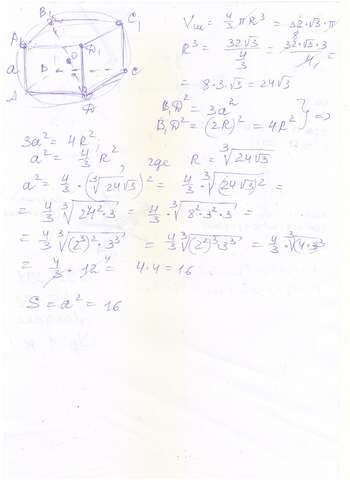 B₁ C₁
A₁ D₁
a B O C
A D
V_ш = 4/3 π R³ = 32·√3·π
R³ = 32√3 / (4/3) = 32·√3·3 / 4 =
= 8·3·√3 = 24√3
B₁D² = 3a²
B₁D² = (2R)² = 4R² } =>
3a² = 4R²
a² = 4/3 R², где R = ∛(24√3)
a² = 4/3 · (∛(24√3))² = 4/3 · ∛((24√3)²) =
= 4/3 ∛(24²·3) = 4/3 · ∛(8²·3²·3) =
= 4/3 ∛((2³)²·3³) = 4/3 ∛((2²)³·3³) = 4/3 · ∛((4·3)³)
= 4/3 · 12 = 4·4 = 16
S = a² = 16